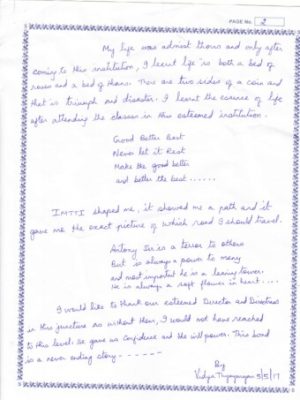 PAGE No. 2
My life was almost thorns and only after
coming to this institution, I learnt life is both a bed of
roses and a bed of thorns. There are two sides of a coin and
that is triumph and disaster. I learnt the essence of life
after attending the classes in this esteemed institution.
Good Better Best
Never let it Rest
Make the good better
and better the best ......
IMTTI shaped me, it showed me a path and it
gave me the exact picture of which road I should travel.
Antony Sir is a terror to others
But is always a power to many
and most important he is a leaning tower.
He is always a soft flower in heart....
I would like to thank our esteemed Director and Directress
in this juncture as without them, I would not have reached
to this level. He gave us Confidence and the will power. This bond
is a never ending story - - - - - -
By
Vidya Thyagarajan 5/5/17